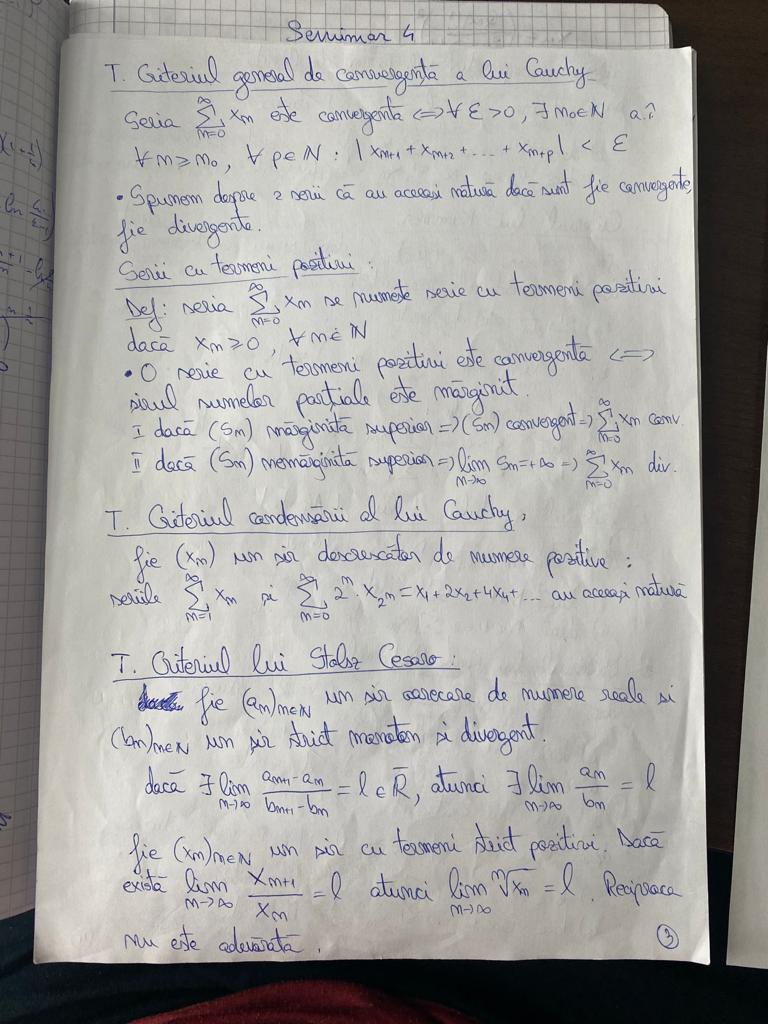 Seminar 4
T. Criteriul general de convergență a lui Cauchy
Seria ∑_{n=0}^{∞} xn este convergenta <=> ∀ ε > 0, ∃ n0 ∈ N a.î
∀ n ≥ n0, ∀ p ∈ N : | xn+1 + xn+2 + ... + xn+p | < ε
• Spunem despre 2 serii că au aceeași natură dacă sunt fie convergente,
fie divergente.
Serii cu termeni pozitivi :
Def: seria ∑_{n=0}^{∞} xn se numește serie cu termeni pozitivi
dacă xn ≥ 0, ∀ n ∈ N
• O serie cu termeni pozitivi este convergentă <=>
sirul sumelor parțiale este mărginit.
I dacă (Sn) mărginită superior => (Sn) convergent => ∑_{n=0}^{∞} xn conv.
II dacă (Sn) nemărginită superior => lim_{n→∞} Sn = +∞ => ∑_{n=0}^{∞} xn div.
T. Criteriul condensării al lui Cauchy,
fie (xn) un sir descrescător de numere pozitive :
seriile ∑_{n=1}^{∞} xn si ∑_{n=0}^{∞} 2^n · x_{2^n} = x1 + 2x2 + 4x4 + ... au aceeași natură
T. Criteriul lui Stolsz Cesaro :
fie (an)n∈N un sir oarecare de numere reale si
(bn)n∈N un sir strict monoton si divergent.
dacă ∃ lim_{n→∞} (an+1 - an)/(bn+1 - bn) = l ∈ R̄, atunci ∃ lim_{n→∞} an/bn = l
fie (xn)n∈N un sir cu termeni strict pozitivi. Dacă
există lim_{n→∞} xn+1/xn = l atunci lim_{n→∞} ⁿ√xn = l. Reciproca
nu este adevărată.
3